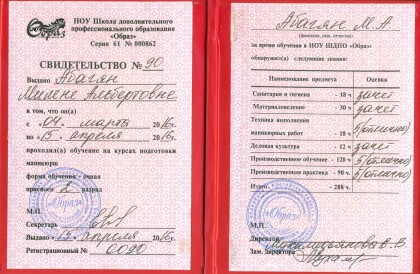 Образ
НОУ Школа дополнительного
профессионального образования
«Образ»
Серия 61 № 000862
СВИДЕТЕЛЬСТВО № 90
Выдано Абагян
Милене Альбертовне
в том, что он(а)
с «04» марта 2016г.
по «15» апреля 2016г.
проходил(а) обучение на курсах подготовки
маникюрш
форма обучения очная
присвоен 2 разряд
«Образ»
М.П.
Секретарь
Выдано «15» апреля 2016г.
Регистрационный № 0090
Абагян М. А.
(фамилия, имя, отчество)
за время обучения в НОУ ШДПО «Образ»
обнаружил(а) следующие знания:
Наименование предмета Оценка
Санитария и гигиена - 18 ч зачет
Материаловедение - 30 ч зачет
Техника выполнения
маникюрных работ - 18 ч 5(отлично)
Деловая культура - 12 ч зачет
Производственное обучение - 120 ч 5(отлично)
Производственная практика - 90 ч. 5(отлично)
Итого: - 288 ч.
«Образ»
М.П.
Директор
Зам. директора